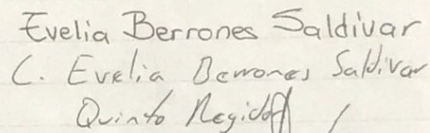 Evelia Berrones Saldivar
C. Evelia Berrones Saldivar
Quinto Regidor